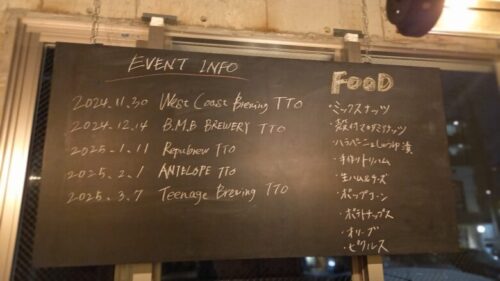 EVENT INFO
2024.11.30 West Coast Brewing TTO
2024.12.14 B.M.B BREWERY TTO
2025.1.11 Repubrew TTO
2025.2.1 ANTELOPE TTO
2025.3.7 Teenage Brewing TTO
FOOD
・ミックスナッツ
・殻付マカダミアナッツ
・ハラペーニョしょうゆ漬
・手作りトリハム
・生ハム&チーズ
・ポップコーン
・ポテトチップス
・オリーブ
・ピクルス